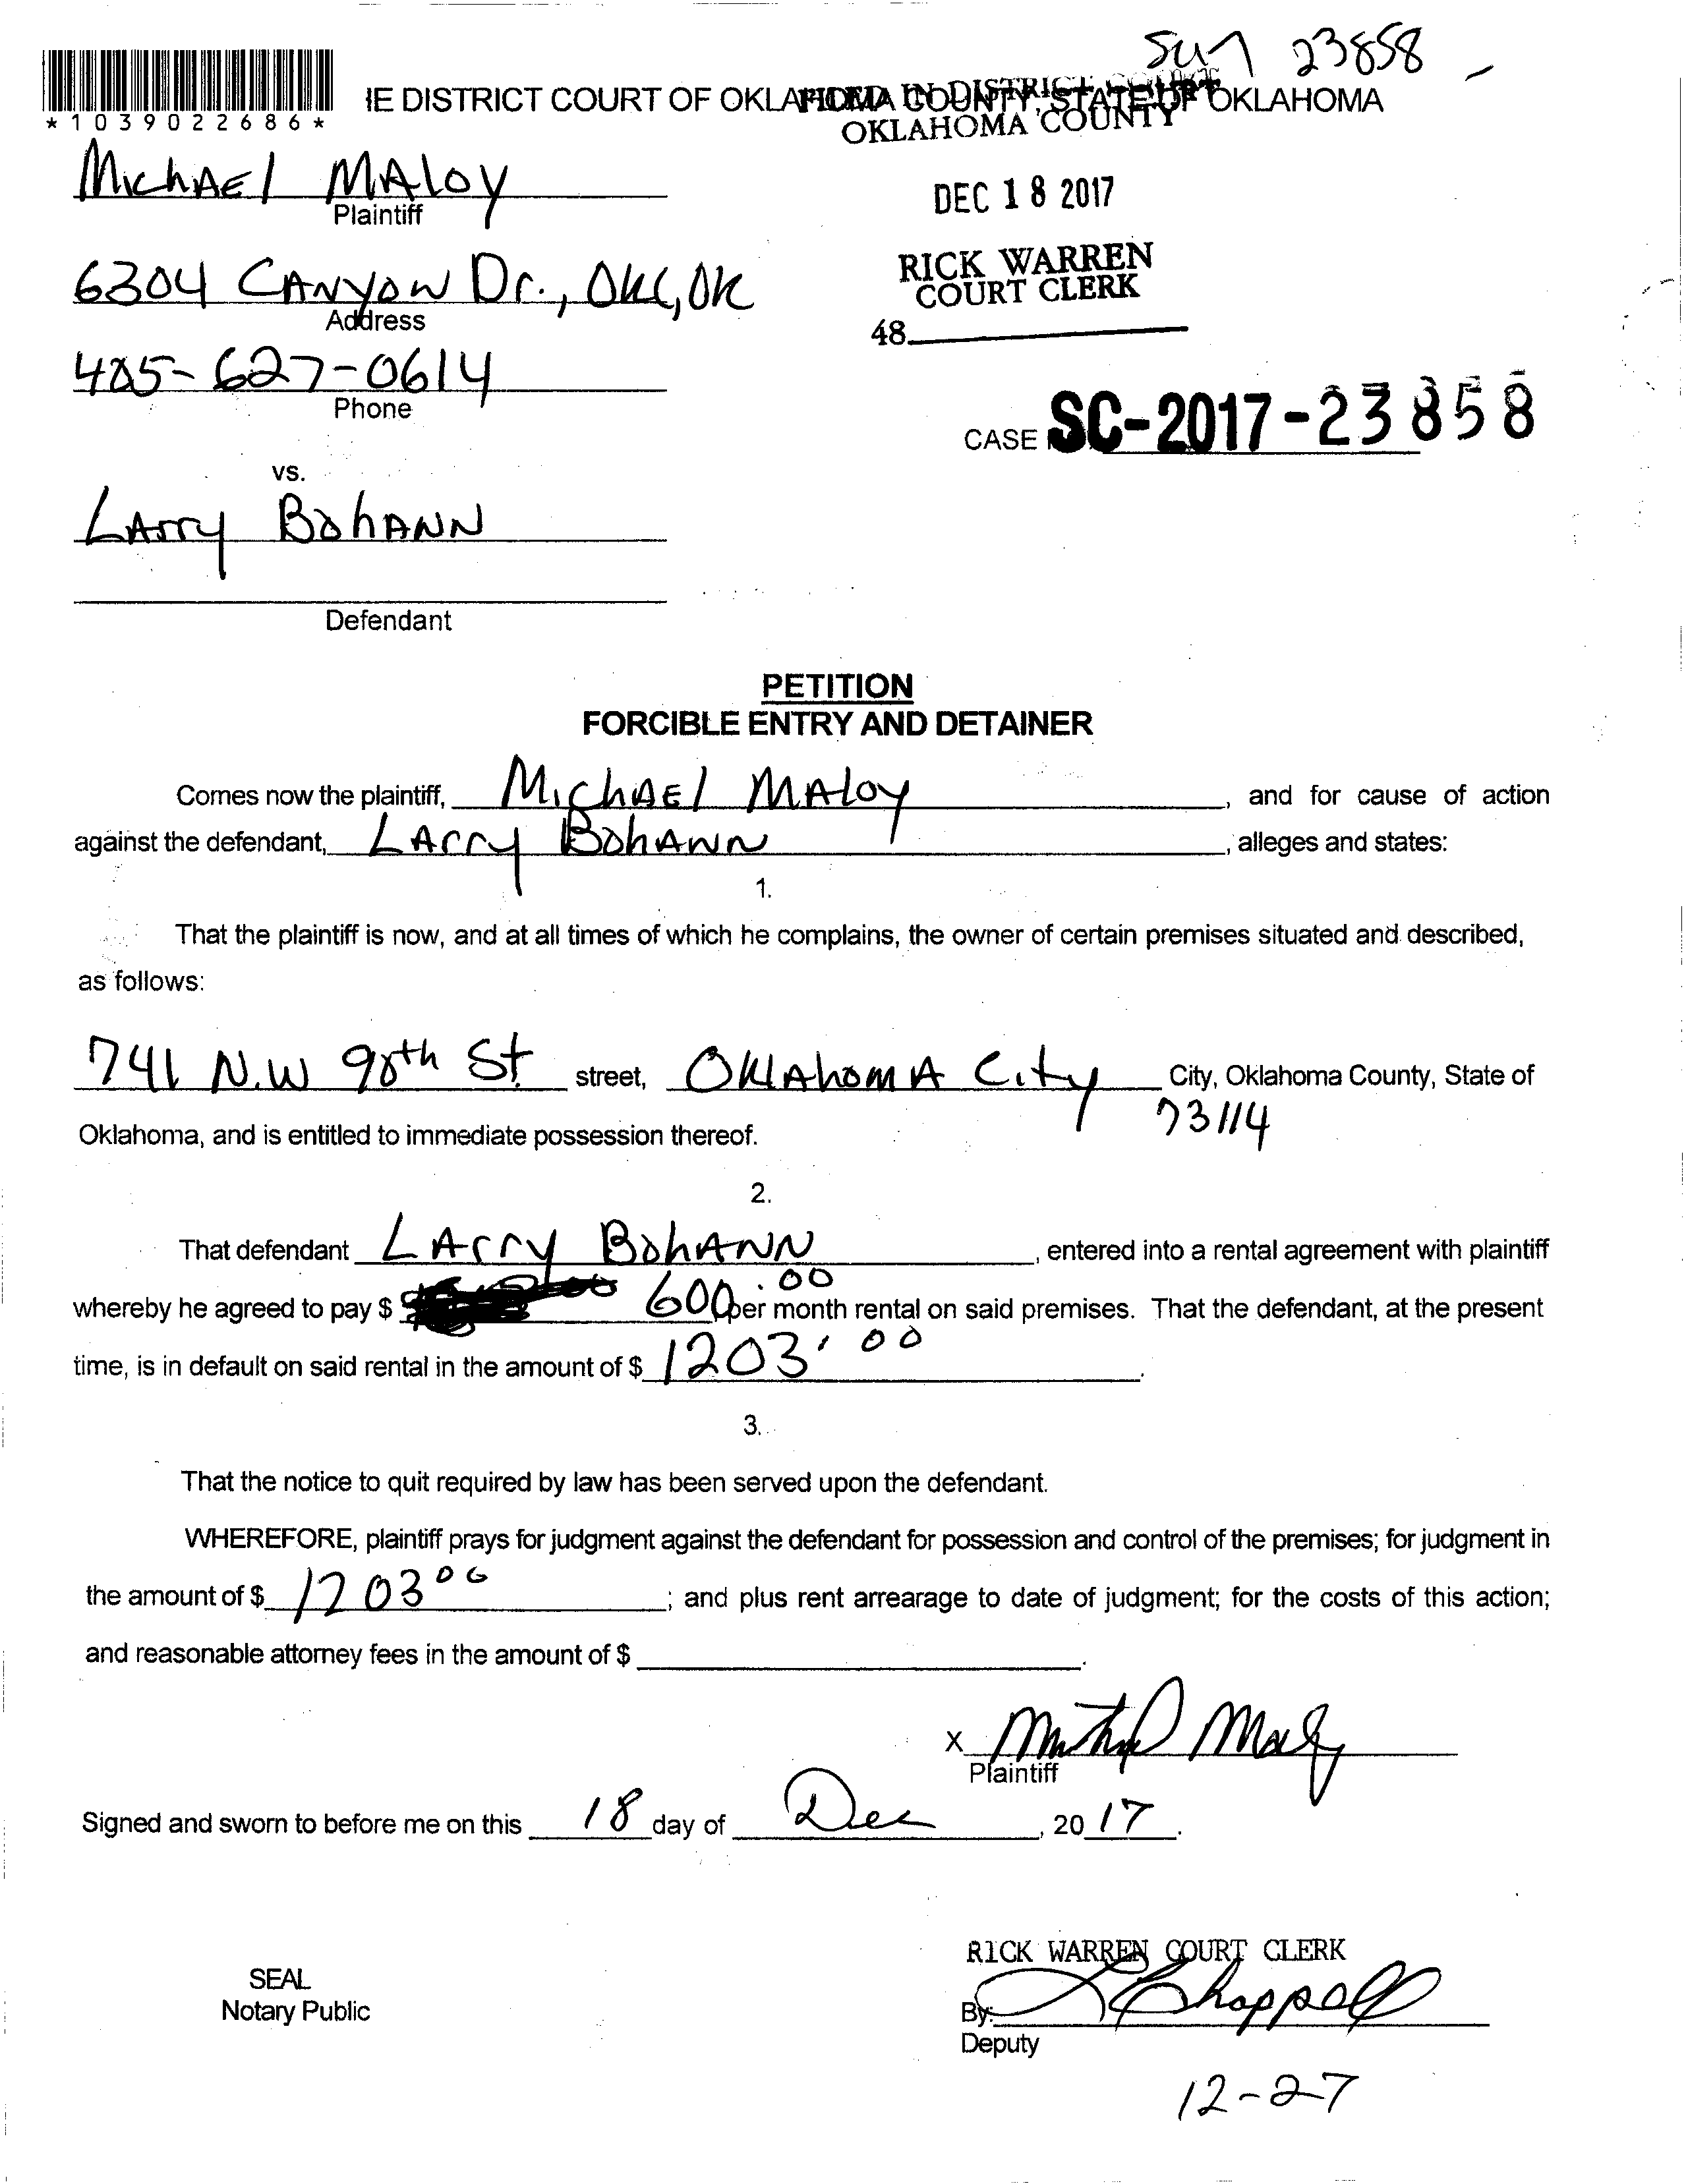 SC17 23858
*1039022686*
IE DISTRICT COURT OF OKLAHOMA COUNTY, STATE OF OKLAHOMA
FILED IN DISTRICT COURT
OKLAHOMA COUNTY
MichAEl MAloy
Plaintiff
DEC 18 2017
6304 CANYON Dr., OKC, OK
Address
RICK WARREN
COURT CLERK
48
405-627-0614
Phone
CASE SC-2017-23858
vs.
LArry BohANN
Defendant
PETITION
FORCIBLE ENTRY AND DETAINER
Comes now the plaintiff, MichAEl MAloy, and for cause of action
against the defendant, LArry BohANN, alleges and states:
1.
That the plaintiff is now, and at all times of which he complains, the owner of certain premises situated and described,
as follows:
741 N.W 98th St street, OklAhomA City City, Oklahoma County, State of
73114
Oklahoma, and is entitled to immediate possession thereof.
2.
That defendant LArry BohANN, entered into a rental agreement with plaintiff
whereby he agreed to pay $ 600.00 per month rental on said premises. That the defendant, at the present
time, is in default on said rental in the amount of $ 1203.00.
3.
That the notice to quit required by law has been served upon the defendant.
WHEREFORE, plaintiff prays for judgment against the defendant for possession and control of the premises; for judgment in
the amount of $ 1203 00; and plus rent arrearage to date of judgment; for the costs of this action;
and reasonable attorney fees in the amount of $ .
X Michael Maloy
Plaintiff
Signed and sworn to before me on this 18 day of Dec, 20 17.
RICK WARREN COURT CLERK
SEAL
Notary Public
By: Chappell
Deputy
12-27